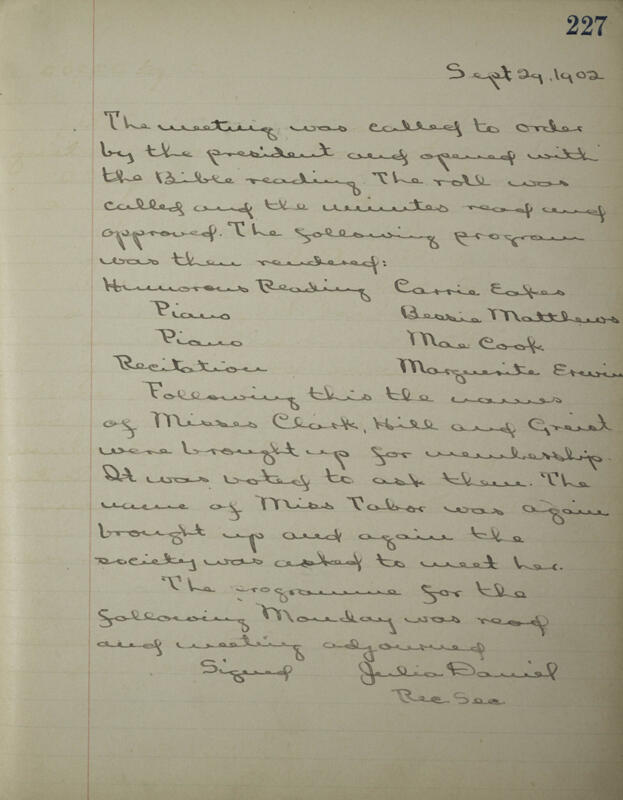 227
Sept 29, 1902
The meeting was called to order
by the president and opened with
the Bible reading. The roll was
called and the minutes read and
approved. The following program
was then rendered:
Humorous Reading Carrie Eakes
Piano Bessie Matthews
Piano Mae Cook
Recitation Marguerite Erwin
Following this the names
of Misses Clark, Hill and Greist
were brought up for membership.
It was voted to ask them. The
name of Miss Tabor was again
brought up and again the
society was asked to meet her.
The programme for the
following Monday was read
and meeting adjourned
Signed Julia Daniel
Rec Sec